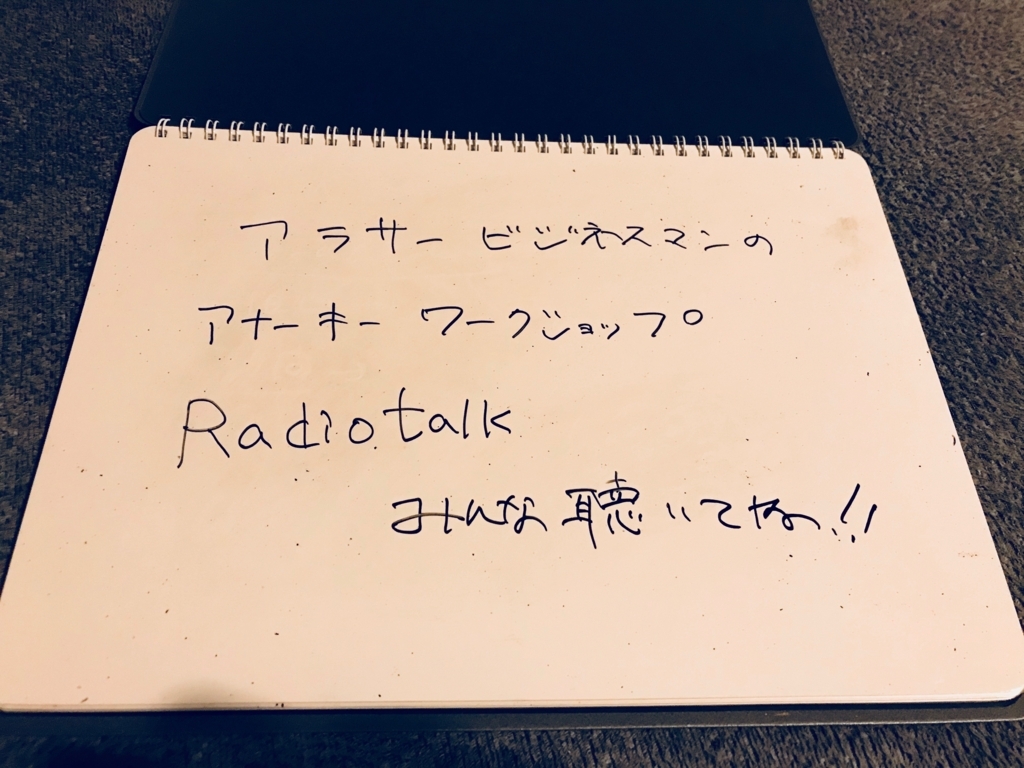 アラサー ビジネスマンの
アナーキー ワークショップ
Radiotalk
みんな聴いてね!!